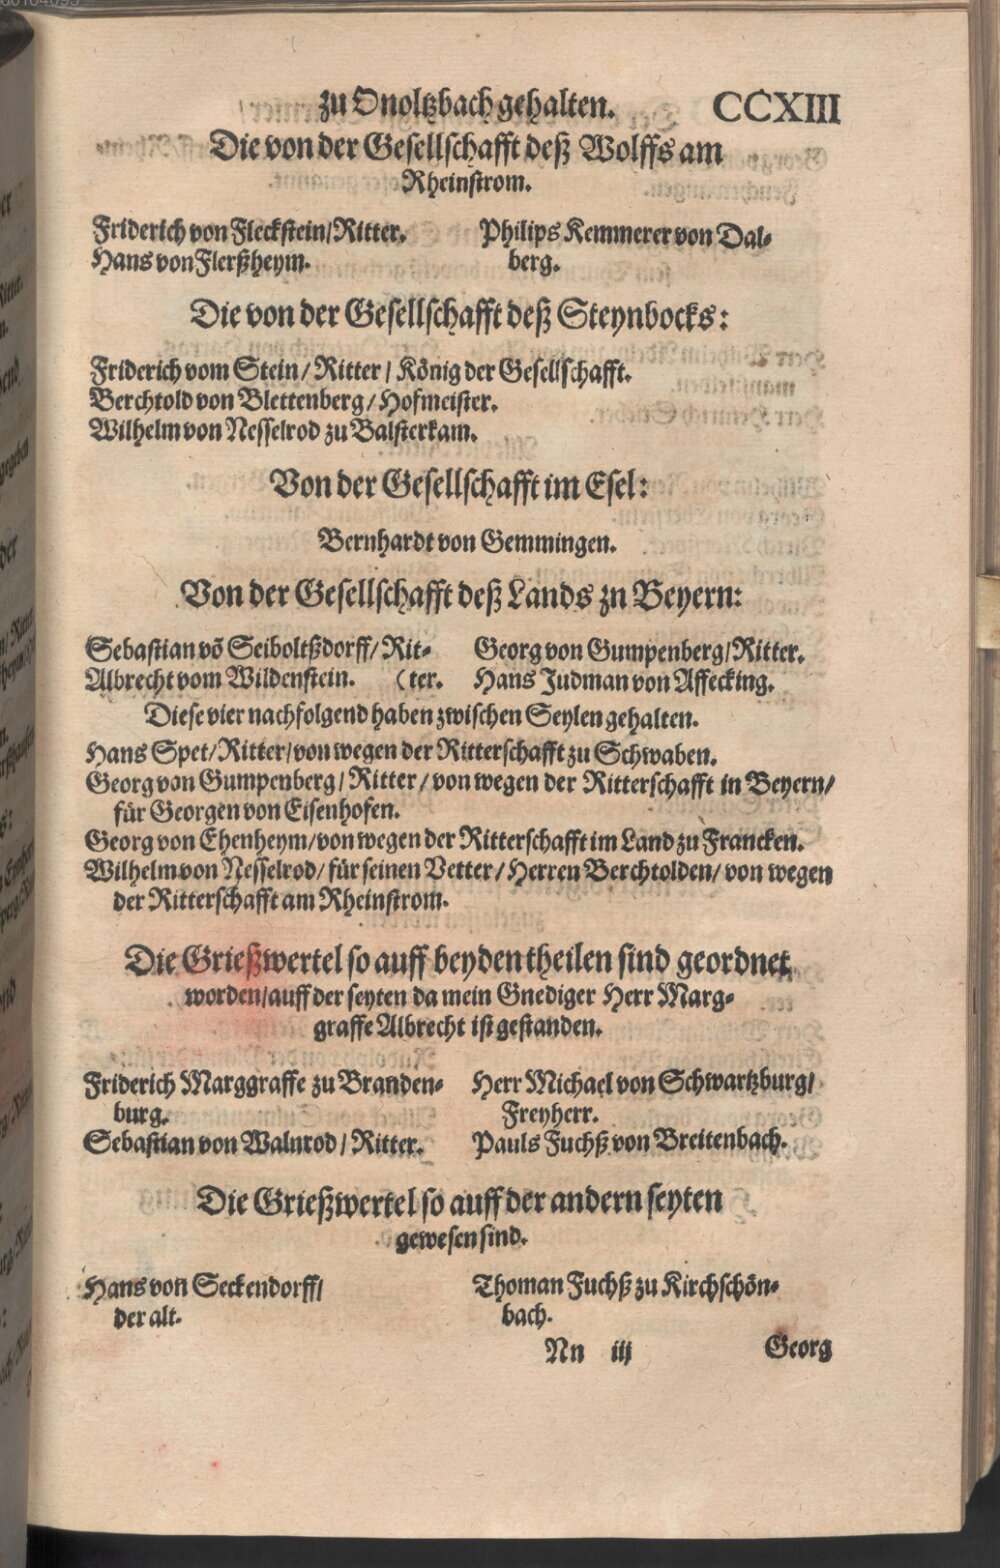 zu Onoltzbach gehalten. CCXIII
Die von der Gesellschafft deß Wolffs am
Rheinstrom.
Friderich von Fleckstein/Ritter.
Hans von Flerßheym.
Philips Kemmerer von Dal-
berg.
Die von der Gesellschafft deß Steynbocks:
Friderich vom Stein/Ritter/König der Gesellschafft.
Berchtold von Blettenberg/Hofmeister.
Wilhelm von Nesselrod zu Balsterkam.
Von der Gesellschafft im Esel:
Bernhardt von Gemmingen.
Von der Gesellschafft deß Lands zn Beyern:
Sebastian võ Seiboltßdorff/Rit-
Albrecht vom Wildenstein. (ter.
Georg von Gumpenberg/Ritter.
Hans Judman von Affecking.
Diese vier nachfolgend haben zwischen Seylen gehalten.
Hans Spet/Ritter/von wegen der Ritterschafft zu Schwaben.
Georg von Gumpenberg/Ritter/von wegen der Ritterschafft in Beyern/
für Georgen von Eisenhofen.
Georg von Ehenheym/von wegen der Ritterschafft im Land zu Francken.
Wilhelm von Nesselrod/für seinen Vetter/Herren Berchtolden/von wegen
der Ritterschafft am Rheinstrom.
Die Grießwertel so auff beyden theilen sind geordnet
worden/auff der seyten da mein Gnediger Herr Marg-
graffe Albrecht ist gestanden.
Friderich Marggraffe zu Branden-
burg.
Sebastian von Walnrod/Ritter.
Herr Michael von Schwartzburg/
Freyherr.
Pauls Fuchß von Breitenbach.
Die Grießwertel so auff der andern seyten
gewesen sind.
Hans von Seckendorff/
der alt.
Thoman Fuchß zu Kirchschön-
bach.
Nn iij Georg